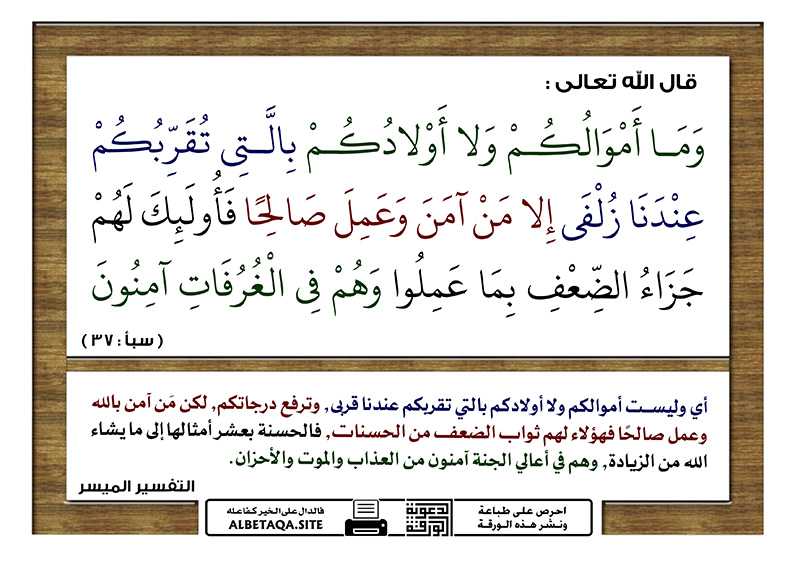 قال الله تعالى :
وَمَا أَمْوَالُكُمْ وَلا أَوْلادُكُمْ بِالَّتِي تُقَرِّبُكُمْ
عِنْدَنَا زُلْفَى إِلا مَنْ آمَنَ وَعَمِلَ صَالِحًا فَأُولَئِكَ لَهُمْ
جَزَاءُ الضِّعْفِ بِمَا عَمِلُوا وَهُمْ فِي الْغُرُفَاتِ آمِنُونَ
( سبأ : ٣٧ )
أي وليست أموالكم ولا أولادكم بالتي تقربكم عندنا قربى, وترفع درجاتكم, لكن مَن آمن بالله
وعمل صالحًا فهؤلاء لهم ثواب الضعف من الحسنات, فالحسنة بعشر أمثالها إلى ما يشاء
الله من الزيادة, وهم في أعالي الجنة آمنون من العذاب والموت والأحزان.
التفسير الميسر
احرص على طباعة
ونشر هذه الورقة
الورقة
الدعوية
فالدال على الخير كفاعله
ALBETAQA.SITE